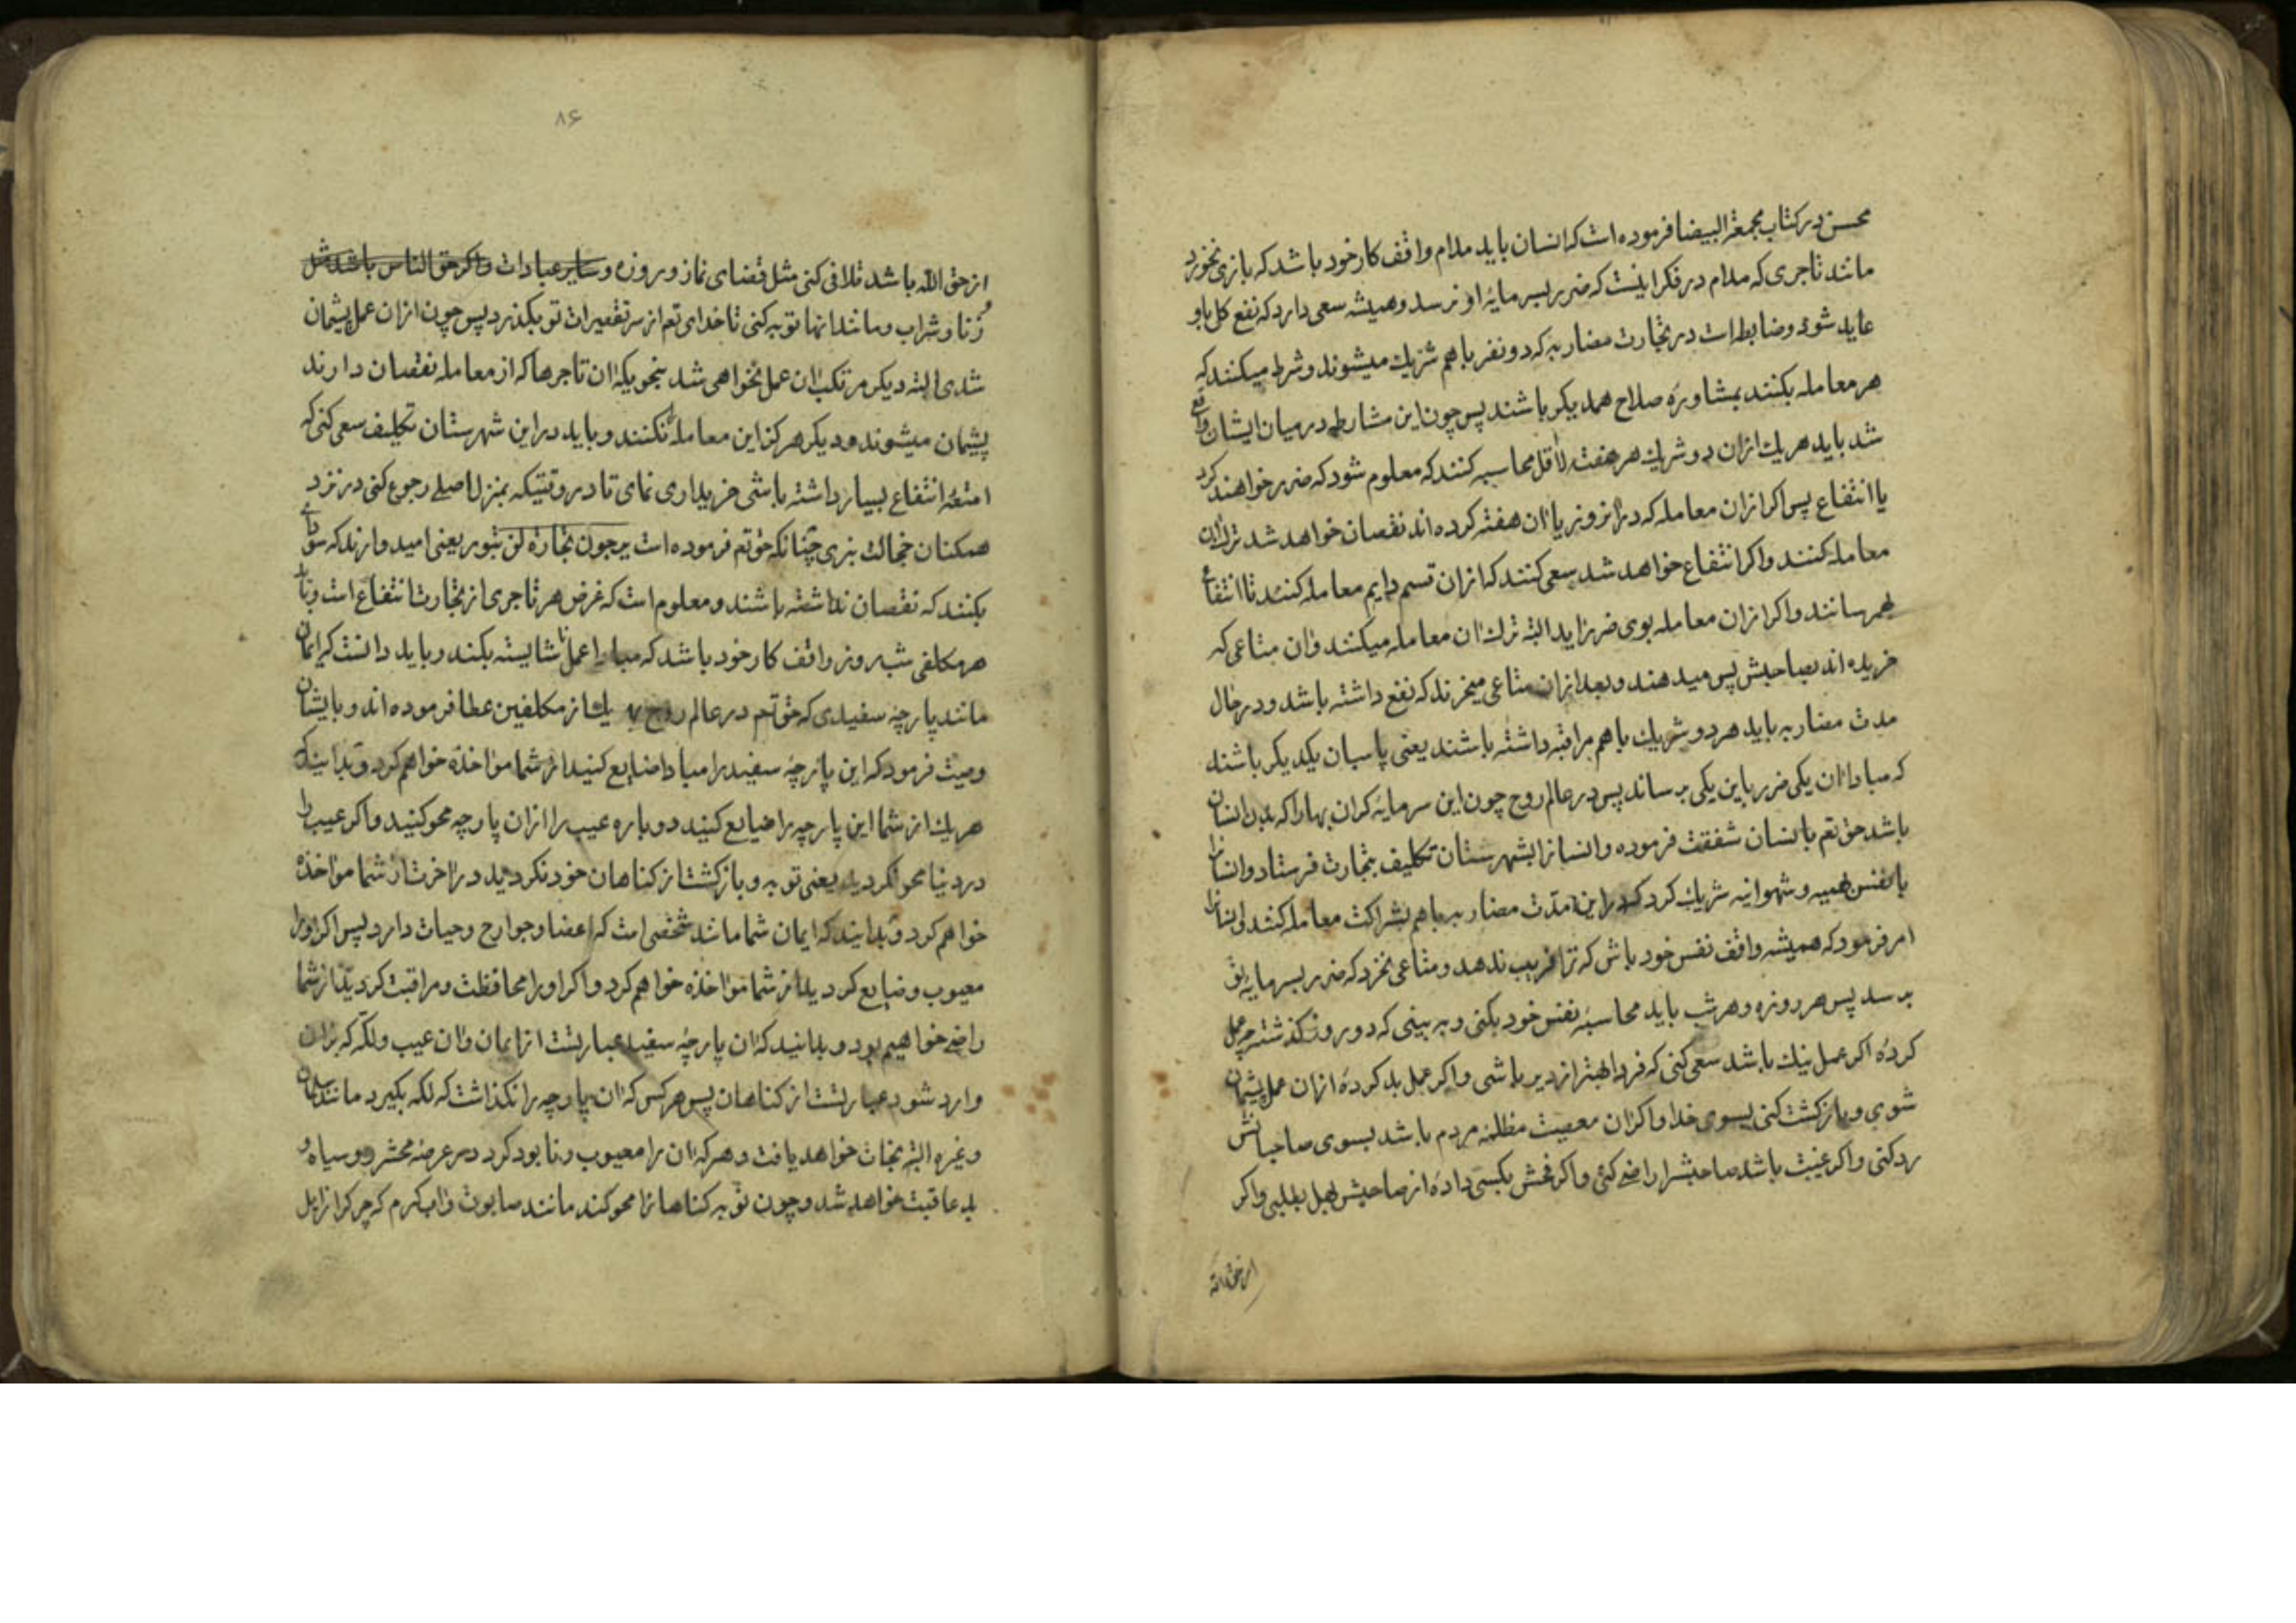 محسن در کتاب محجة البیضا فرموده است که انسان باید مدام واقف کار خود باشد که بازی نخورد
مانند تاجری که مدام در فکر اینست که ضرر بسرمایه او نرسد و همیشه سعی دارد که نفع کل باو
عاید شود و ضابطه است در تجارت مضاربه که دو نفر با هم شریک میشوند و شرط میکنند که
هر معامله بکنند بمشاوره صلاح همدیکر باشند پس چون این مشارطه در میان ایشان واقع
شد باید هر یک ازان دو شریک هر هفته لااقل محاسبه کنند که معلوم شود که ضرر خواهند کرد
یا انتفاع پس اکر ازان معامله که دران روز یا ان هفته کرده اند نقصان خواهد شد ترک ان
معامله کنند و اکر انتفاع خواهد شد سعی کنند که ازان قسم دایم معامله کنند تا انتفاع
بهمرسانند و اکر ازان معامله بوی ضرر اید البته ترک ان معامله میکنند وان متاعی که
خریده اند بصاحبش پس میدهند و بعد ازان متاعی میخرند که نفع داشته باشد و در حال
مدت مضاربه باید هر دو شریک با هم مراقبه داشته باشند یعنی پاسبان یکدیکر باشند
که مبادا ان یکی ضرر باین یکی برساند پس در عالم روح چون این سرمایه کران بها را که بدن انسان
باشد حق تعم بانسان شفقت فرموده و انسانرا بشهرستان تکلیف بتجارت فرستاد و انسانرا
با نفس بهیمیه و شهوانیه شریک کرد که در این مدت مضاربه باهم بشراکت معامله کنند و انسانرا
امر فرمود که همیشه واقف نفس خود باش که ترا فریب ندهد و متاعی نخرد که ضرر بسرمایه تو
برسد پس هر روزه و هر شب باید محاسبه نفس خود بکنی و به بینی که در روز کذشته چه عمل
کرده اکر عمل نیک باشد سعی کنی که فردا بهتر از دیر باشی و اکر عمل بد کرده ازان عمل پشیمان
شوی و بازکشت کنی بسوی خدا و اکر ان معصیت مظلمه مردم باشد بسوی صاحبانش
رد کنی و اکر غیبت باشد صاحبشرا راضی کنی و اکر فحش بکسی داده از صاحبش بحل بطلبی و اکر
از حق الله
۸۶
از حق الله باشد تلافی کنی مثل قضای نماز و روزه و سایر عبادات و اکر حق الناس باشد مثل
زنا و شراب و مانند اینها توبه کنی تا خدای تعم از سر تقصیرات تو بکذرد پس چون ازان عمل پشیمان
شدی البته دیکر مرتکب ان عمل نخواهی شد بنحویکه ان تاجرها که از معامله نقصان دارند
پشیمان میشوند و دیکر هرکز این معامله نکنند و باید در این شهرستان تکلیف سعی کنی که
امتعه انتفاع بسیار داشته باشی خریداری نمای تا در وقتیکه بمنزل اصلی رجوع کنی در نزد
همکنان خجالت نبری چنانکه حق تعم فرموده است یرجون تجارة لن تبور یعنی امیدوارند که سودای
بکنند که نقصان نداشته باشند و معلوم است که غرض هر تاجری از تجارت انتفاع است و باید
هر مکلفی شب و روز واقف کار خود باشد که مبادا عمل ناشایسته بکند و باید دانست که ایمان
مانند پارچه سفیدی که حق تعم در عالم روح بهر یک از مکلفین عطا فرموده اند و بایشان
وصیت فرمود که این پارچه سفید را مبادا ضایع کنید از شما مواخذه خواهم کرد و بدانید که
هر یک از شما این پارچه را ضایع کنید دوباره عیب را ازان پارچه محو کنید و اکر عیب را
در دنیا محو نکردید یعنی توبه و بازکشت از کناهان خود نکردید در اخرت از شما مواخذه
خواهم کرد و بدانید که ایمان شما مانند شخصی است که اعضا و جوارح و حیات دارد پس اکر اورا
معیوب و ضایع کردید از شما مواخذه خواهم کرد و اکر اورا محافظت و مراقبت کردید از شما
راضی خواهیم بود و بدانید که ان پارچه سفید عبارتست از ایمان وان عیب و لکه که بران
وارد شود عبارتست از کناهان پس هر کس که ان پارچه را نکذاشت که لکه بکیرد مانند سلمان
و غیره البته نجات خواهد یافت و هر که ان را معیوب و نابود کرد در عرصه محشر رو سیاه و
بد عاقبت خواهد شد و چون توبه کناهانرا محو کند مانند صابون و اب کرم که چرک را زایل